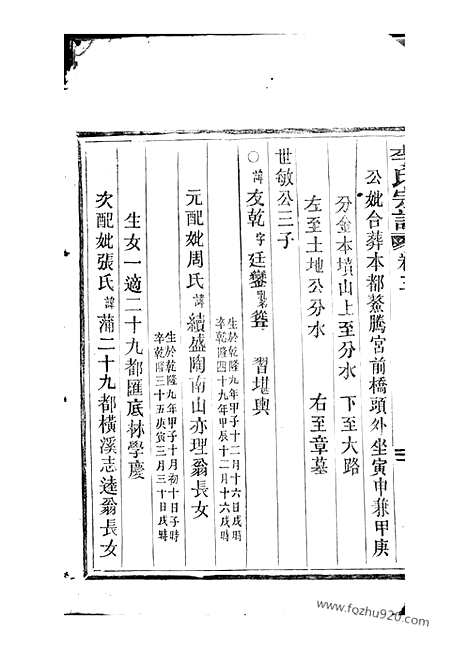 李氏宗譜 卷三
公妣合葬本都鰲騰宮前橋頭外坐寅申兼甲庚
分金本墳山上至分水 下至大路
左至土地公分水 右至章墓
世敏公三子
○諱友乾字廷鑾 習堪輿
生於乾隆九年甲子十二月十六日戌時
卒乾隆四十九年甲辰十二月十六戌時
元配妣周氏諱續盛陶南山亦理翁長女
生於乾隆九年甲子十月初十日子時
卒乾隆三十五庚寅三月三十日戌時
生女一適二十九都匯底林學慶
次配妣張氏諱蒲二十九都橫溪志逵翁長女
www.fozhu920.com